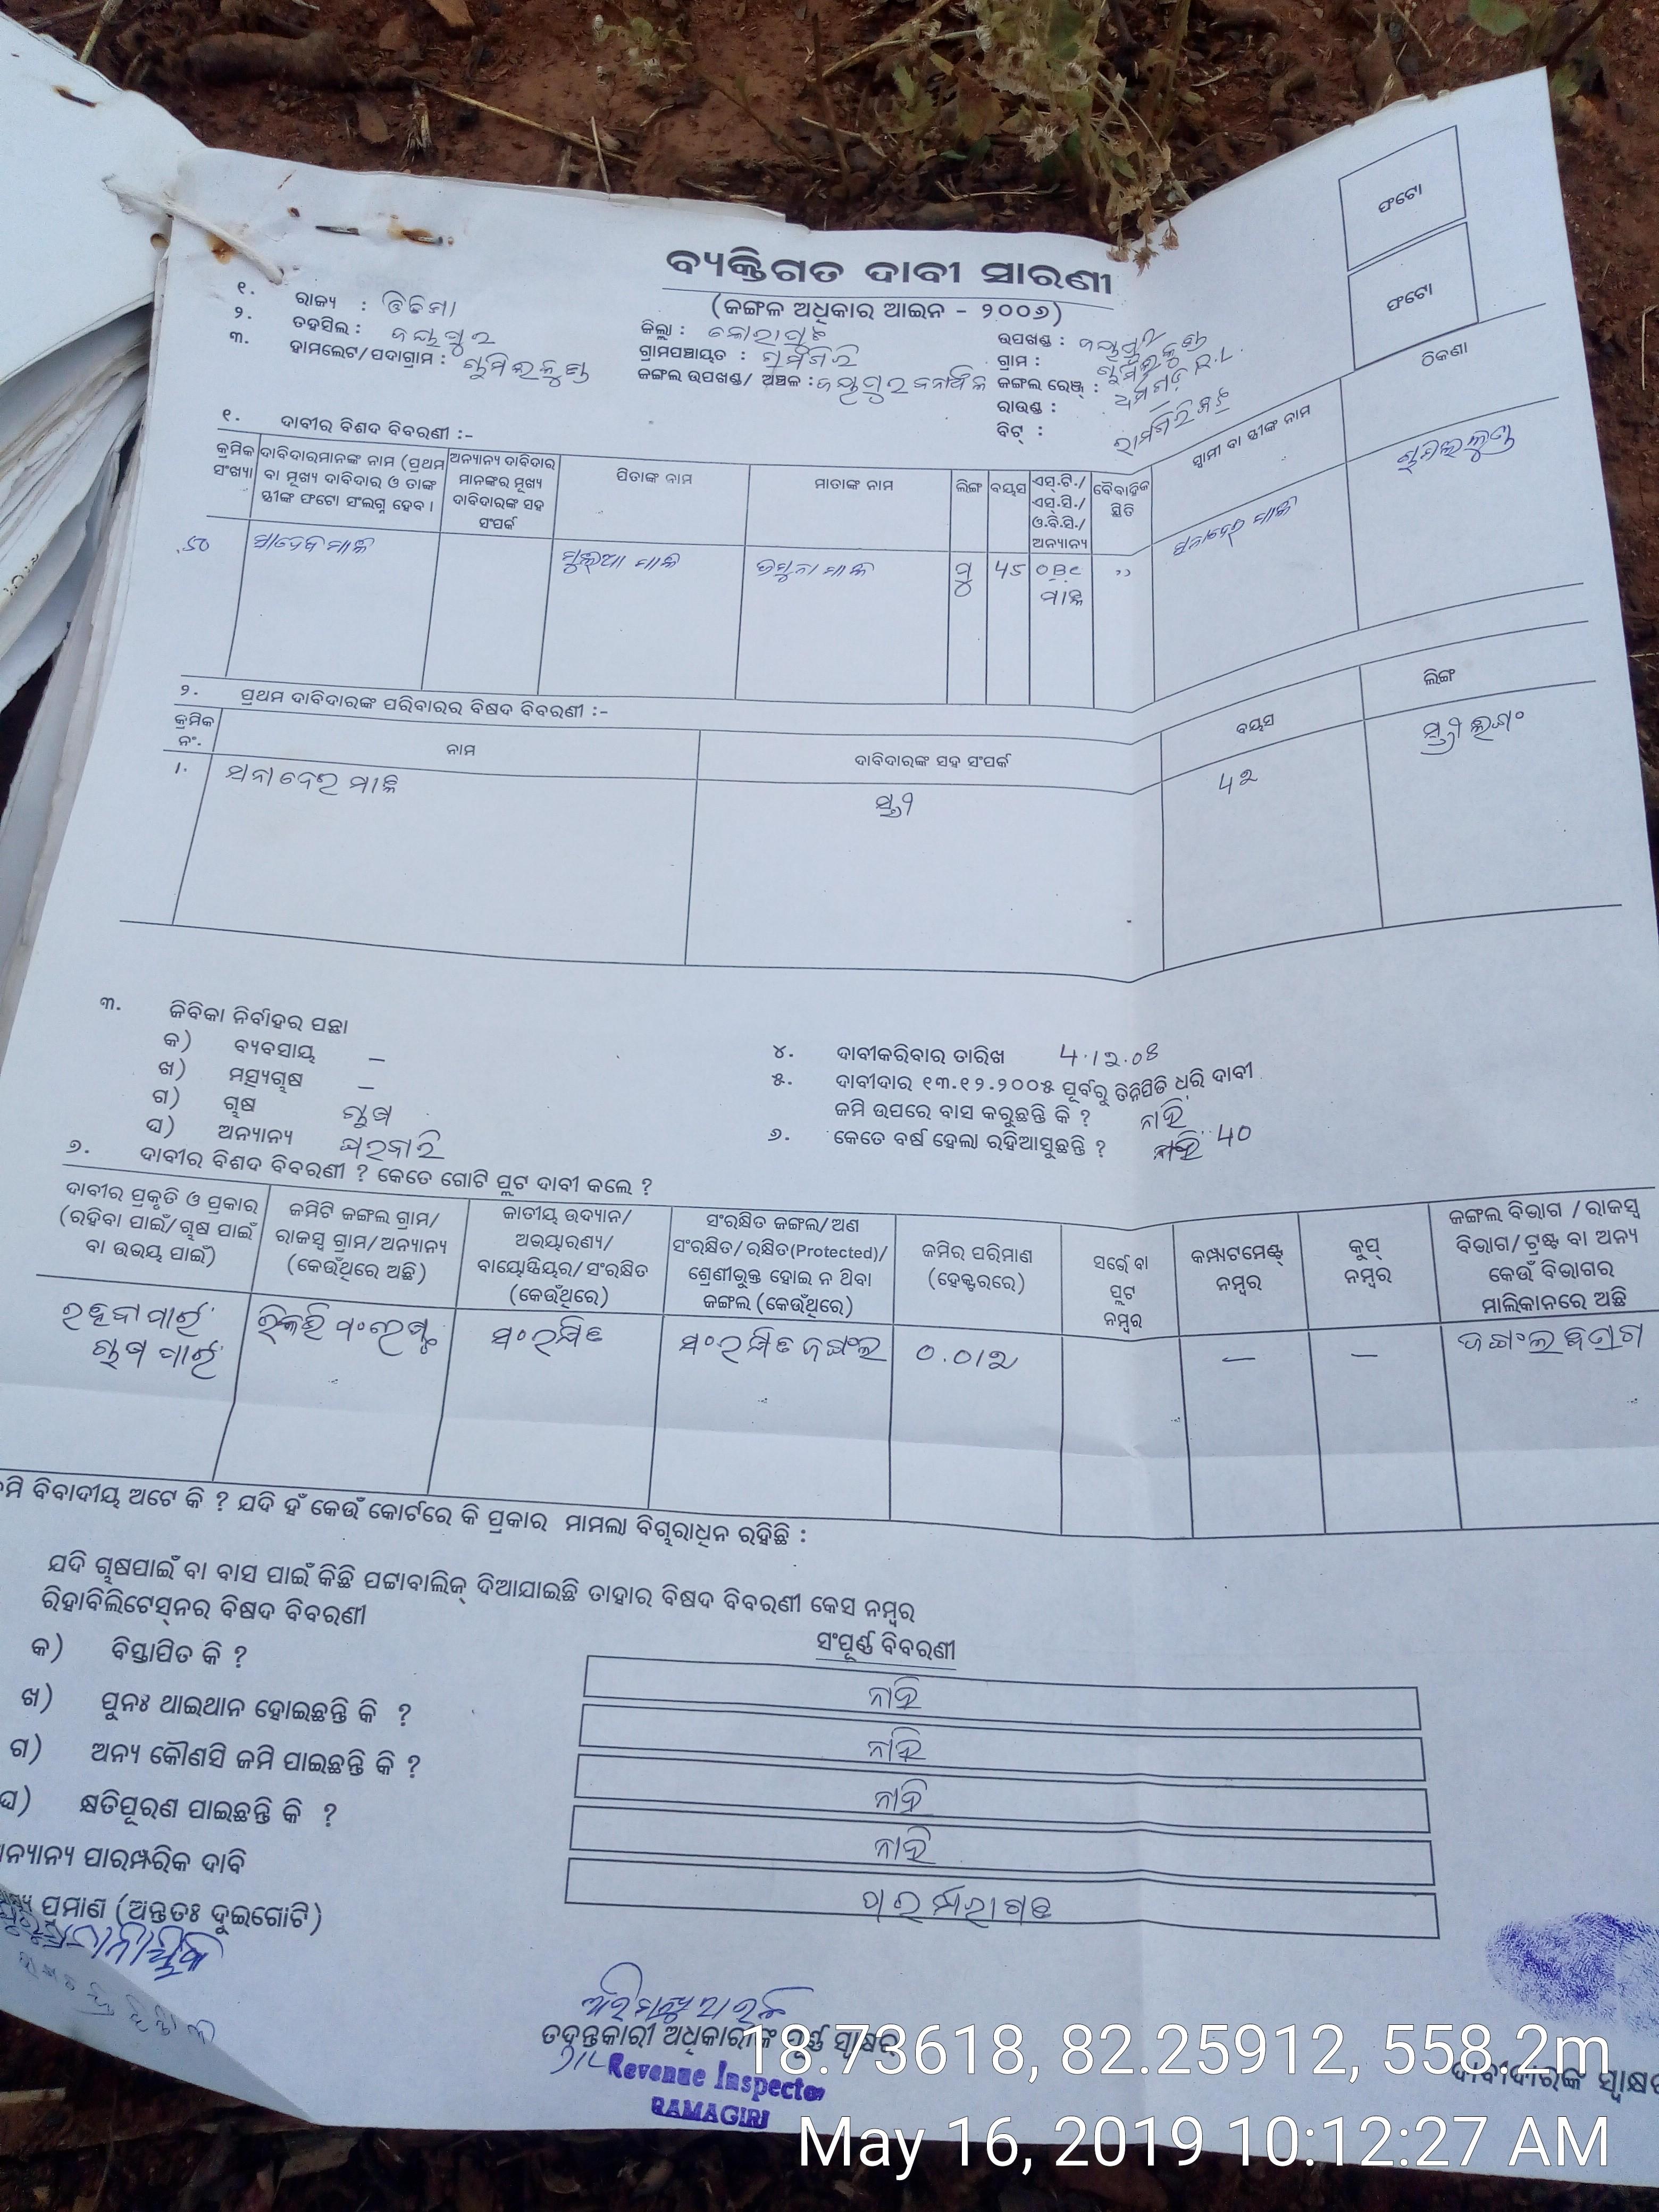 ଫଟୋ
ଫଟୋ
ବ୍ୟକ୍ତିଗତ ଦାବୀ ସାରଣୀ
(ଜଙ୍ଗଲ ଅଧିକାର ଆଇନ - ୨୦୦୬)
୧. ରାଜ୍ୟ : ଓଡିଶା
୨. ତହସିଲ : ଜୟପୁର ଜିଲ୍ଲା : କୋରାପୁଟ ଉପଖଣ୍ଡ : ଜୟପୁର
୩. ହାମଲେଟ/ପଦାଗ୍ରାମ : ଗ୍ରାମପଞ୍ଚାୟତ : ଗ୍ରାମ :
ଜଙ୍ଗଲ ଉପଖଣ୍ଡ/ ଅଞ୍ଚଳ : ଜୟପୁର ଜଙ୍ଗଲ ରେଞ୍ଜ :
ରାଉଣ୍ଡ :
ବିଟ୍ :
୧. ଦାବୀର ବିଶଦ ବିବରଣୀ :-
କ୍ରମିକ ସଂଖ୍ୟା
ଦାବିଦାରମାନଙ୍କ ନାମ (ପ୍ରଥମ ବା ମୂଖ୍ୟ ଦାବିଦାର ଓ ତାଙ୍କ ସ୍ତ୍ରୀଙ୍କ ଫଟୋ ସଂଲଗ୍ନ ହେବ ।
ଅନ୍ୟାନ୍ୟ ଦାବିଦାର ମାନଙ୍କର ମୂଖ୍ୟ ଦାବିଦାରଙ୍କ ସହ ସଂପର୍କ
ପିତାଙ୍କ ନାମ
ମାତାଙ୍କ ନାମ
ଲିଙ୍ଗ
ବୟସ
ଏସ୍.ଟି./ ଏସ୍.ସି./ ଓ.ବି.ସି./ ଅନ୍ୟାନ୍ୟ
ବୈବାହିକ ସ୍ଥିତି
ସ୍ୱାମୀ ବା ସ୍ତ୍ରୀଙ୍କ ନାମ
ଠିକଣା
ମାଳି ମାଳି ମାଳି ପୁ 45 OBC ,, ମାଳି
ମାଳି
୨. ପ୍ରଥମ ଦାବିଦାରଙ୍କ ପରିବାରର ବିଷଦ ବିବରଣୀ :-
କ୍ରମିକ ନଂ. ନାମ ଦାବିଦାରଙ୍କ ସହ ସଂପର୍କ ବୟସ ଲିଙ୍ଗ
୧. ମାଳି ସ୍ତ୍ରୀ 4୨ ସ୍ତ୍ରୀ
୩. ଜିବିକା ନିର୍ବାହର ପନ୍ଥା
କ) ବ୍ୟବସାୟ –
ଖ) ମତ୍ସ୍ୟଚାଷ –
ଗ) ଚାଷ ଚାଷ
ଘ) ଅନ୍ୟାନ୍ୟ ଘରବାରି
୪. ଦାବୀକରିବାର ତାରିଖ 4.1୨.08
୫. ଦାବୀଦାର ୧୩.୧୨.୨୦୦୫ ପୂର୍ବରୁ ତିନିପିଢି ଧରି ଦାବୀ
ଜମି ଉପରେ ବାସ କରୁଛନ୍ତି କି ? ନାହିଁ
୬. କେତେ ବର୍ଷ ହେଲା ରହିଆସୁଛନ୍ତି ? 40
୭. ଦାବୀର ବିଶଦ ବିବରଣୀ ? କେତେ ଗୋଟି ପ୍ଲଟ ଦାବୀ କଲେ ?
ଦାବୀର ପ୍ରକୃତି ଓ ପ୍ରକାର (ରହିବା ପାଇଁ/ଚାଷ ପାଇଁ ବା ଉଭୟ ପାଇଁ)
କମିଟି ଜଙ୍ଗଲ ଗ୍ରାମ/ ରାଜସ୍ୱ ଗ୍ରାମ/ଅନ୍ୟାନ୍ୟ (କେଉଁଥିରେ ଅଛି)
ଜାତୀୟ ଉଦ୍ୟାନ/ ଅଭୟାରଣ୍ୟ/ ବାୟୋସ୍ପିୟର/ସଂରକ୍ଷିତ (କେଉଁଥିରେ)
ସଂରକ୍ଷିତ ଜଙ୍ଗଲ/ଅଣ ସଂରକ୍ଷିତ/ରକ୍ଷିତ(Protected)/ ଶ୍ରେଣୀଭୁକ୍ତ ହୋଇ ନ ଥିବା ଜଙ୍ଗଲ (କେଉଁଥିରେ)
ଜମିର ପରିମାଣ (ହେକ୍ଟରରେ)
ସର୍ଭେ ବା ପ୍ଲଟ ନମ୍ବର
କମ୍ପାଟମେଣ୍ଟ୍ ନମ୍ବର
କୁପ୍ ନମ୍ବର
ଜଙ୍ଗଲ ବିଭାଗ / ରାଜସ୍ୱ ବିଭାଗ/ ଟ୍ରଷ୍ଟ ବା ଅନ୍ୟ କେଉଁ ବିଭାଗର ମାଲିକାନରେ ଅଛି
ରହିବା ପାଇଁ ସଂରକ୍ଷିତ ସଂରକ୍ଷିତ ଜଙ୍ଗଲ 0.01୨ – – ବିଭାଗ
ଚାଷ ପାଇଁ
ମି ବିବାଦୀୟ ଅଟେ କି ? ଯଦି ହଁ କେଉଁ କୋର୍ଟରେ କି ପ୍ରକାର ମାମଲା ବିଚାରାଧିନ ରହିଛି :
ଯଦି ଚାଷପାଇଁ ବା ବାସ ପାଇଁ କିଛି ପଟ୍ଟାବାଲିକ୍ ଦିଆଯାଇଛି ତାହାର ବିଷଦ ବିବରଣୀ କେସ ନମ୍ବର
ରିହାବିଲିଟେସ୍‌ନର ବିଷଦ ବିବରଣୀ
ସଂପୂର୍ଣ୍ଣ ବିବରଣୀ
କ) ବିସ୍ଥାପିତ କି ? ନାହିଁ
ଖ) ପୁନଃ ଥାଇଥାନ ହୋଇଛନ୍ତି କି ? ନାହିଁ
ଗ) ଅନ୍ୟ କୌଣସି ଜମି ପାଇଛନ୍ତି କି ? ନାହିଁ
ଘ) କ୍ଷତିପୂରଣ ପାଇଛନ୍ତି କି ? ନାହିଁ
ନ୍ୟାନ୍ୟ ପାରମ୍ପରିକ ଦାବି ପରମ୍ପରାଗତ
ପ୍ରମାଣ (ଅନ୍ତତଃ ଦୁଇଗୋଟି)
ତଦନ୍ତକାରୀ ଅଧିକାରୀଙ୍କ ପୂର୍ଣ୍ଣ ସ୍ୱାକ୍ଷର
Revenue Inspector
RAMAGIRI
ଦାବୀଦାରଙ୍କ ସ୍ୱାକ୍ଷର
18.73618, 82.25912, 558.2m
May 16, 2019 10:12:27 AM